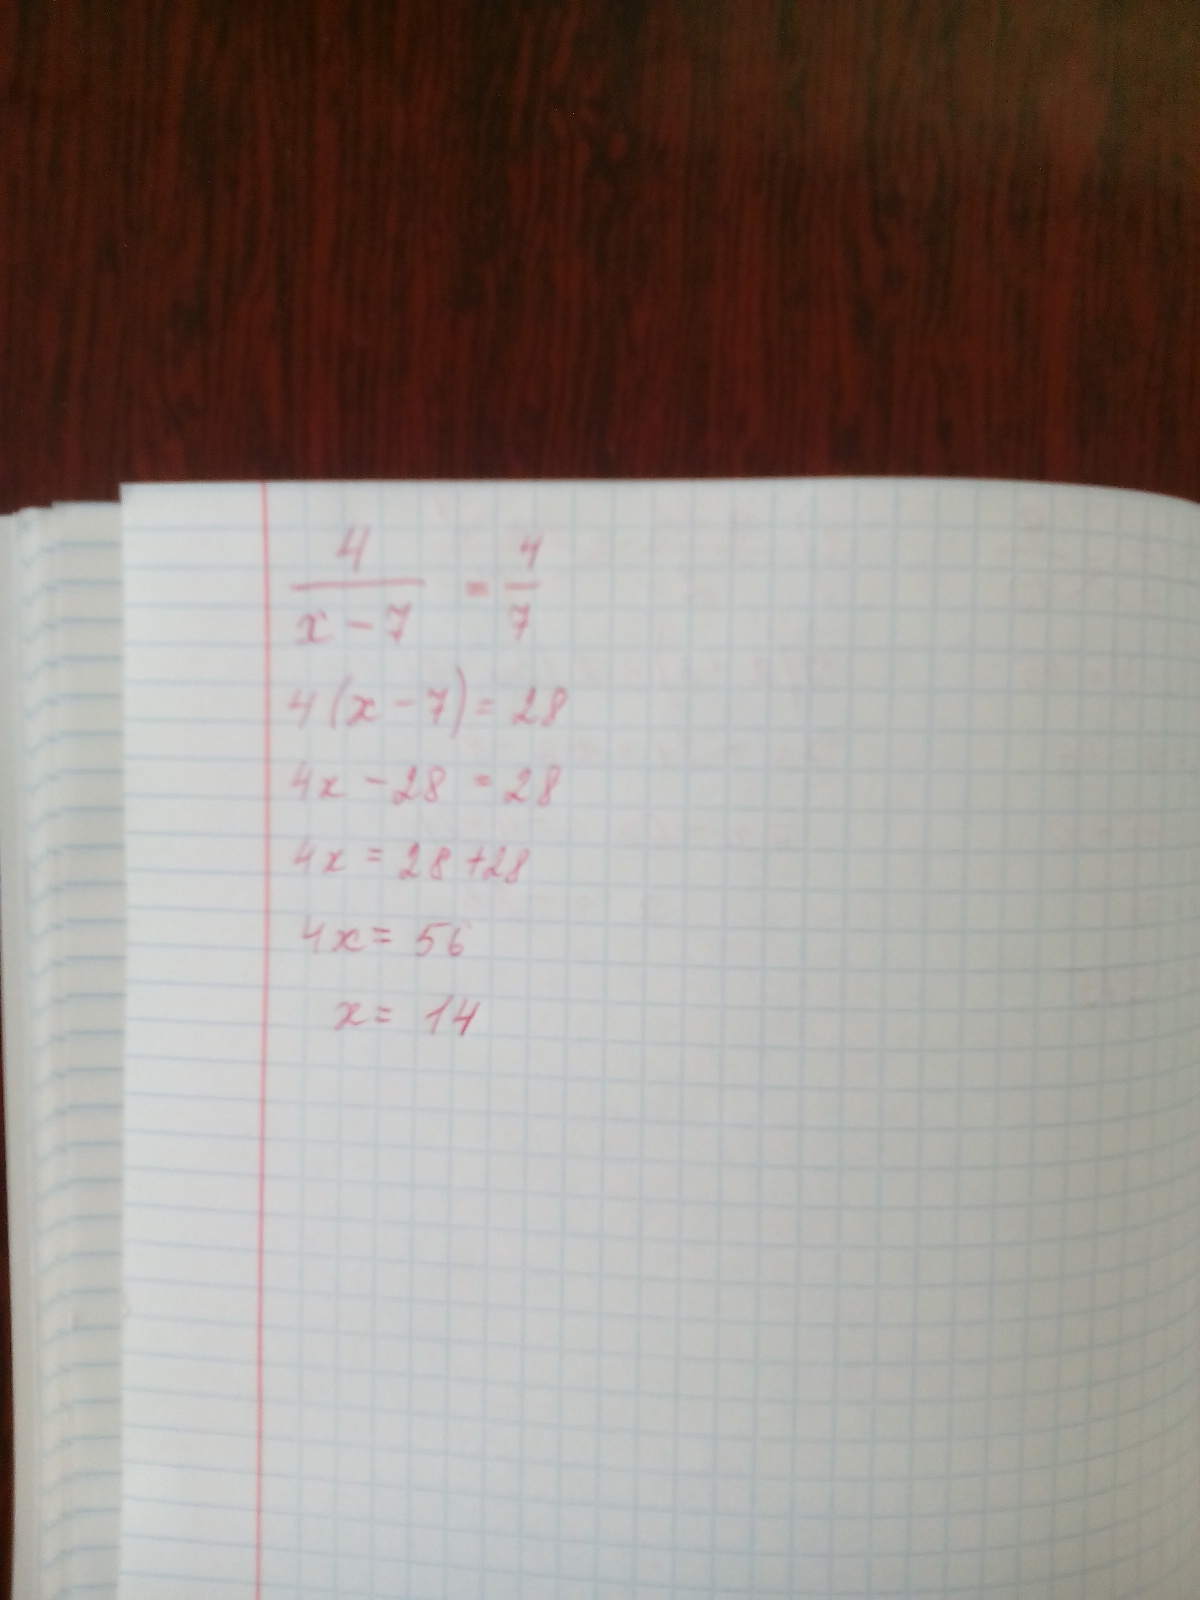 4/(x-7) = 4/7
4(x-7) = 28
4x - 28 = 28
4x = 28 + 28
4x = 56
x = 14